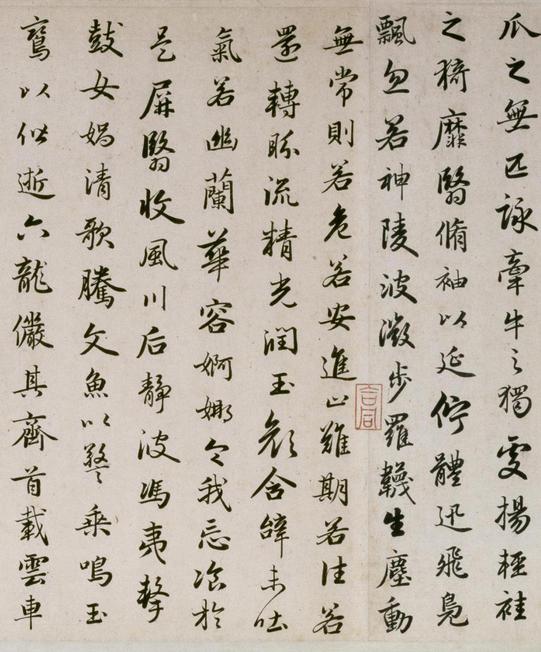 瓜之無匹詠牽牛之獨處揚輕袿
之猗靡翳脩袖以延佇體迅飛鳧
飄忽若神陵波微步羅韈生塵動
無常則若危若安進止難期若往若
還轉眄流精光潤玉顏含辭未吐
氣若幽蘭華容婀娜令我忘飡於
是屏翳收風川后靜波馮夷擊
鼓女媧清歌騰文魚以警乘鳴玉
鸞以偕逝六龍儼其齊首載雲車
合同